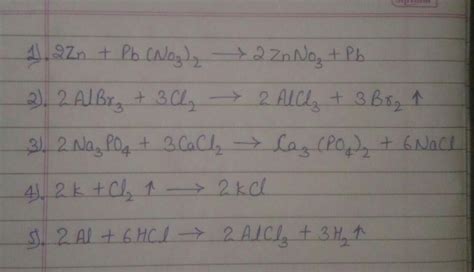 1). 2Zn + Pb(No₃)₂ → 2ZnNo₃ + Pb
2). 2AlBr₃ + 3Cl₂ → 2AlCl₃ + 3Br₂ ↑
3). 2Na₃PO₄ + 3CaCl₂ → Ca₃(PO₄)₂ + 6NaCl
4). 2k + Cl₂ ↑ → 2kCl
5). 2Al + 6HCl → 2AlCl₃ + 3H₂↑